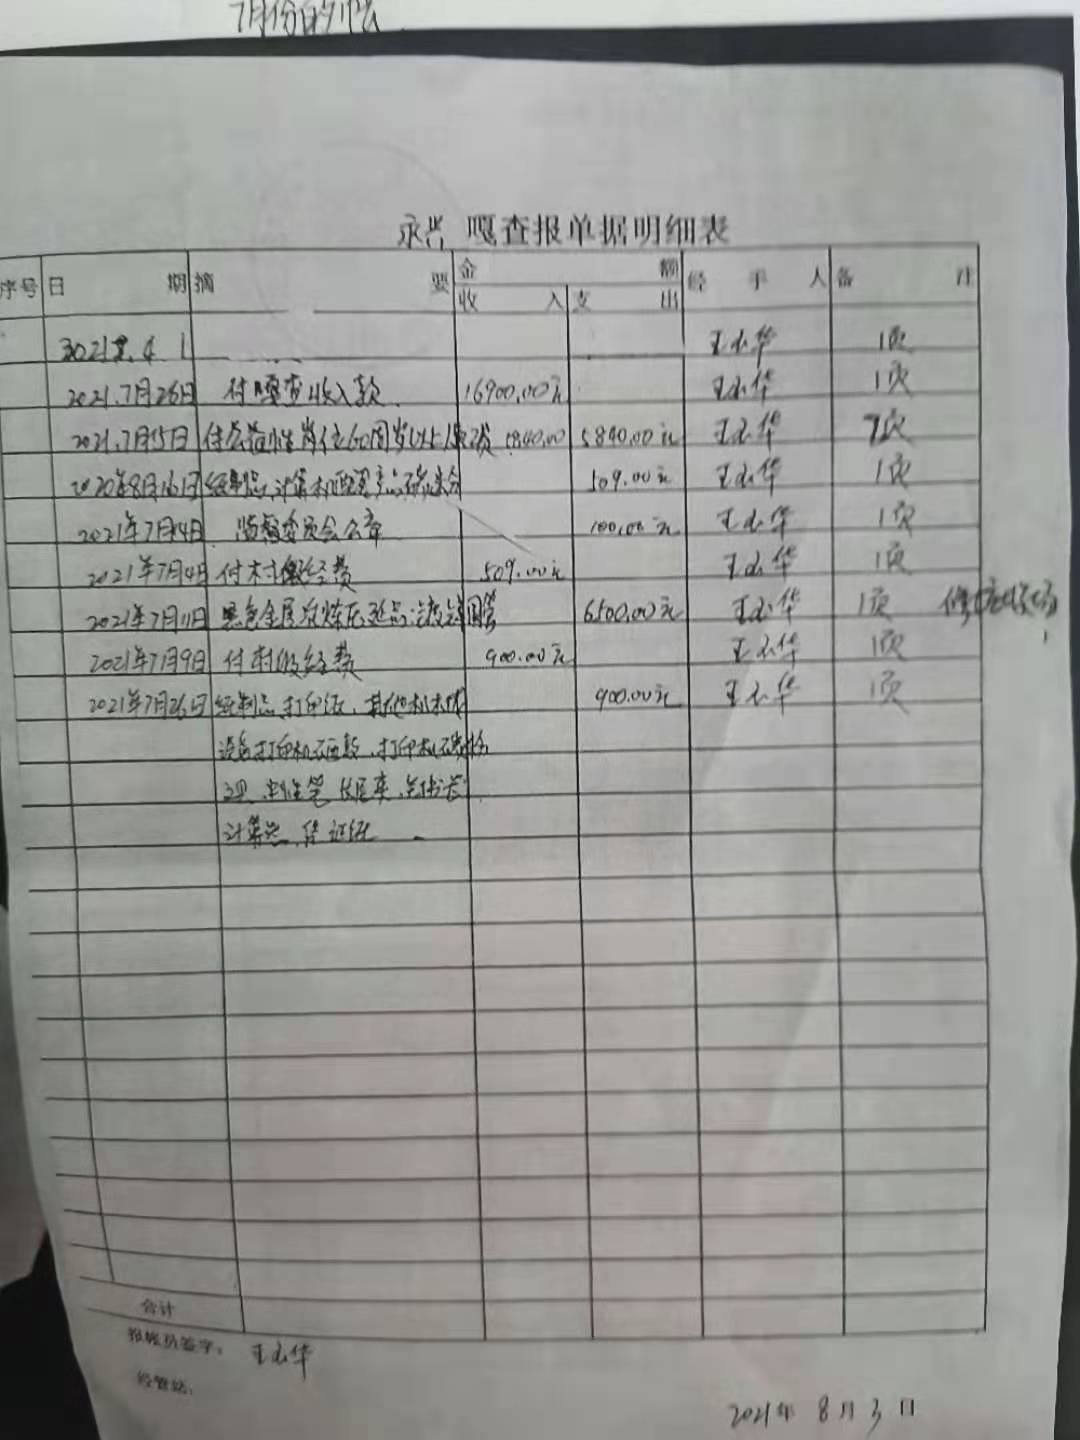 7月份的帐
永兴 嘎查报单据明细表
序号 日期 摘要 金额 经手人 备注
收入 支出
王玉华 1页
2021.7月26日 付嘎查收入款 16900.00元 王玉华 1页
2021.7月15日 付公益性岗位60周岁以上 5840.00元 王玉华 7页
2020年8月16日 纸制品,计算机配套产品 509.00元 王玉华 1页
2021年7月4日 监督委员会公章 100.00元 王玉华 1页
2021年7月4日 付村级经费 509.00元 王玉华 1页
2021年7月11日 黑色金属冶炼压延品 6500.00元 王玉华 1页
2021年7月9日 付村级经费 900.00元 王玉华 1页
2021年7月26日 纸制品,打印纸,其他机械 900.00元 王玉华 1页
设备打印机硒鼓,打印机碳粉
计算器
合计
报帐员签字: 王玉华
经管站:
2021年8月3日